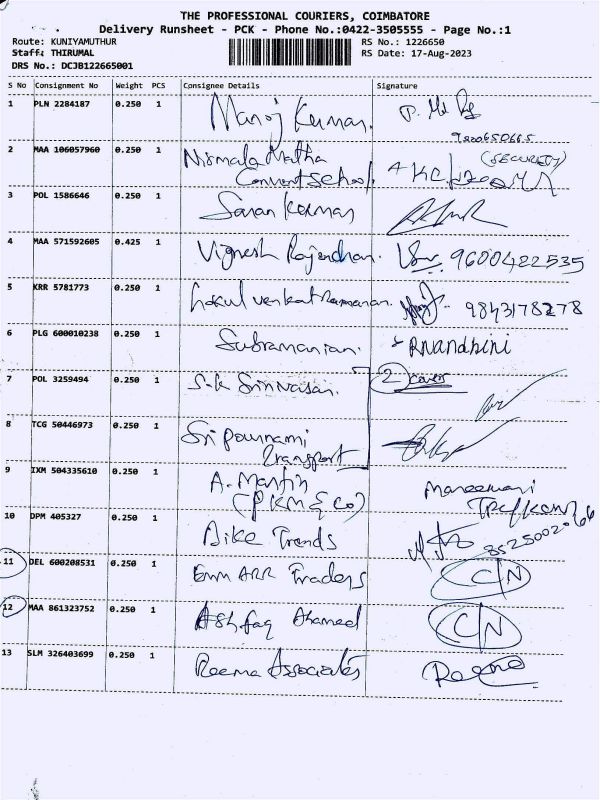 THE PROFESSIONAL COURIERS, COIMBATORE
Delivery Runsheet - PCK - Phone No.:0422-3505555 - Page No.:1
Route: KUNIYAMUTHUR RS No.: 1226650
Staff: THIRUMAL RS Date: 17-Aug-2023
DRS No.: DCJB122665001
S No Consignment No Weight PCS Consignee Details Signature
1 PLN 2284187 0.250 1 Manoj Kumar.
2 MAA 106057960 0.250 1 Nirmala Matha (SECURITY)
Convent School.
3 POL 1586646 0.250 1 Saran Kumar
4 MAA 571592605 0.425 1 Vignesh Rajendran. 9600422535
5 KRR 5781773 0.250 1 Gokul Venkat Ramanan. 9843178278
6 PLG 600010238 0.250 1 Subramanian. Anandhini
7 POL 3259494 0.250 1 S.K Srinivasan. 2 covers
8 TCG 50446973 0.250 1 Sri Pournami
Transport
9 IXM 504335610 0.250 1 A. Martin
(PKM & Co)
10 DPM 405327 0.250 1 Aike Trends 8525002066
11 DEL 600208531 0.250 1 Emm ARR Traders C/N
12 MAA 861323752 0.250 1 Ashfaq Ahamed C/N
13 SLM 326403699 0.250 1 Reema Associates Reema